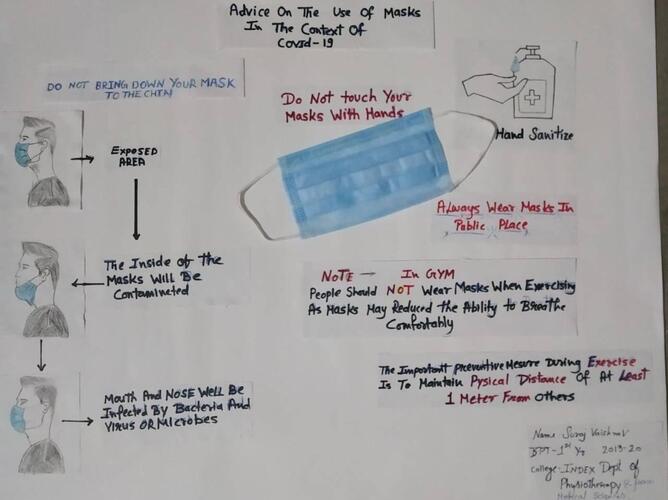 Advice On The Use Of Masks
In The Context Of
Covid-19
DO NOT BRING DOWN YOUR MASK
TO THE CHIN
Do Not touch Your
Masks With Hands
Hand Sanitize
EXPOSED
AREA
Always Wear Masks In
Public Place
The Inside of the
Masks Will Be
Contaminated
NOTE → In GYM
People Should NOT Wear Masks When Exercising
As Masks May Reduced the Ability to Breathe
Comfortably
The Important Preventive Mesure During Exercise
Is To Maintain Pysical Distance Of At Least
1 Meter From Others
Mouth And NOSE WELL Be
Infected By Bacteria And
Virus OR Microbes
Name - Suraj
BPT - 1st Yr 2019-20
College - INDEX Dept of
Physiotherapy